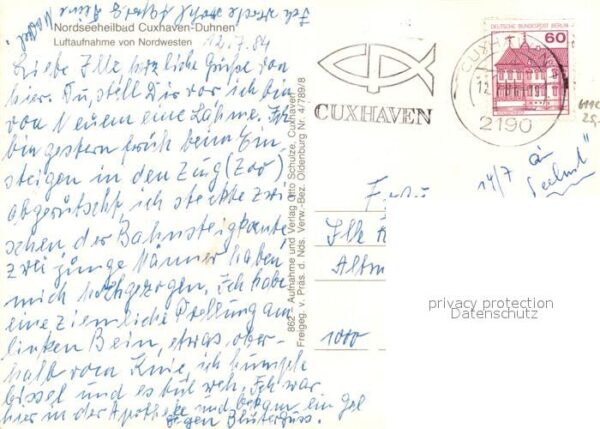 Nordseeheilbad Cuxhaven-Duhnen
Luftaufnahme von Nordwesten
12.7.84
Liebe Ilse herzliche Grüße von
hier. Du, stell Dir vor ich bin
von Neuem eine Lahme. Ich
bin gestern früh beim Ein-
steigen in den Zug (Zoo)
abgerutscht, ich steckte zwi-
schen der Bahnsteigkante
zwei junge Männer haben
mich hochgezogen. Ich habe
eine ziemliche Prellung am
linken Bein, etwas ober-
halb vom Knie, ich humple
bissel und es tut weh. Ich war
hier in der Apotheke und bekam ein Gel
gegen Bluterguss.
8627 Aufnahme und Verlag Otto Schulze, Cuxhaven
Freigeg. v. Präs. d. Nds. Verw.-Bez. Oldenburg Nr. 4/789/8
CUXHAVEN
DEUTSCHE BUNDESPOST BERLIN
60
CUXHAVEN
12.
2190
14/7
Ilse
Altm
1000
privacy protection
Datenschutz